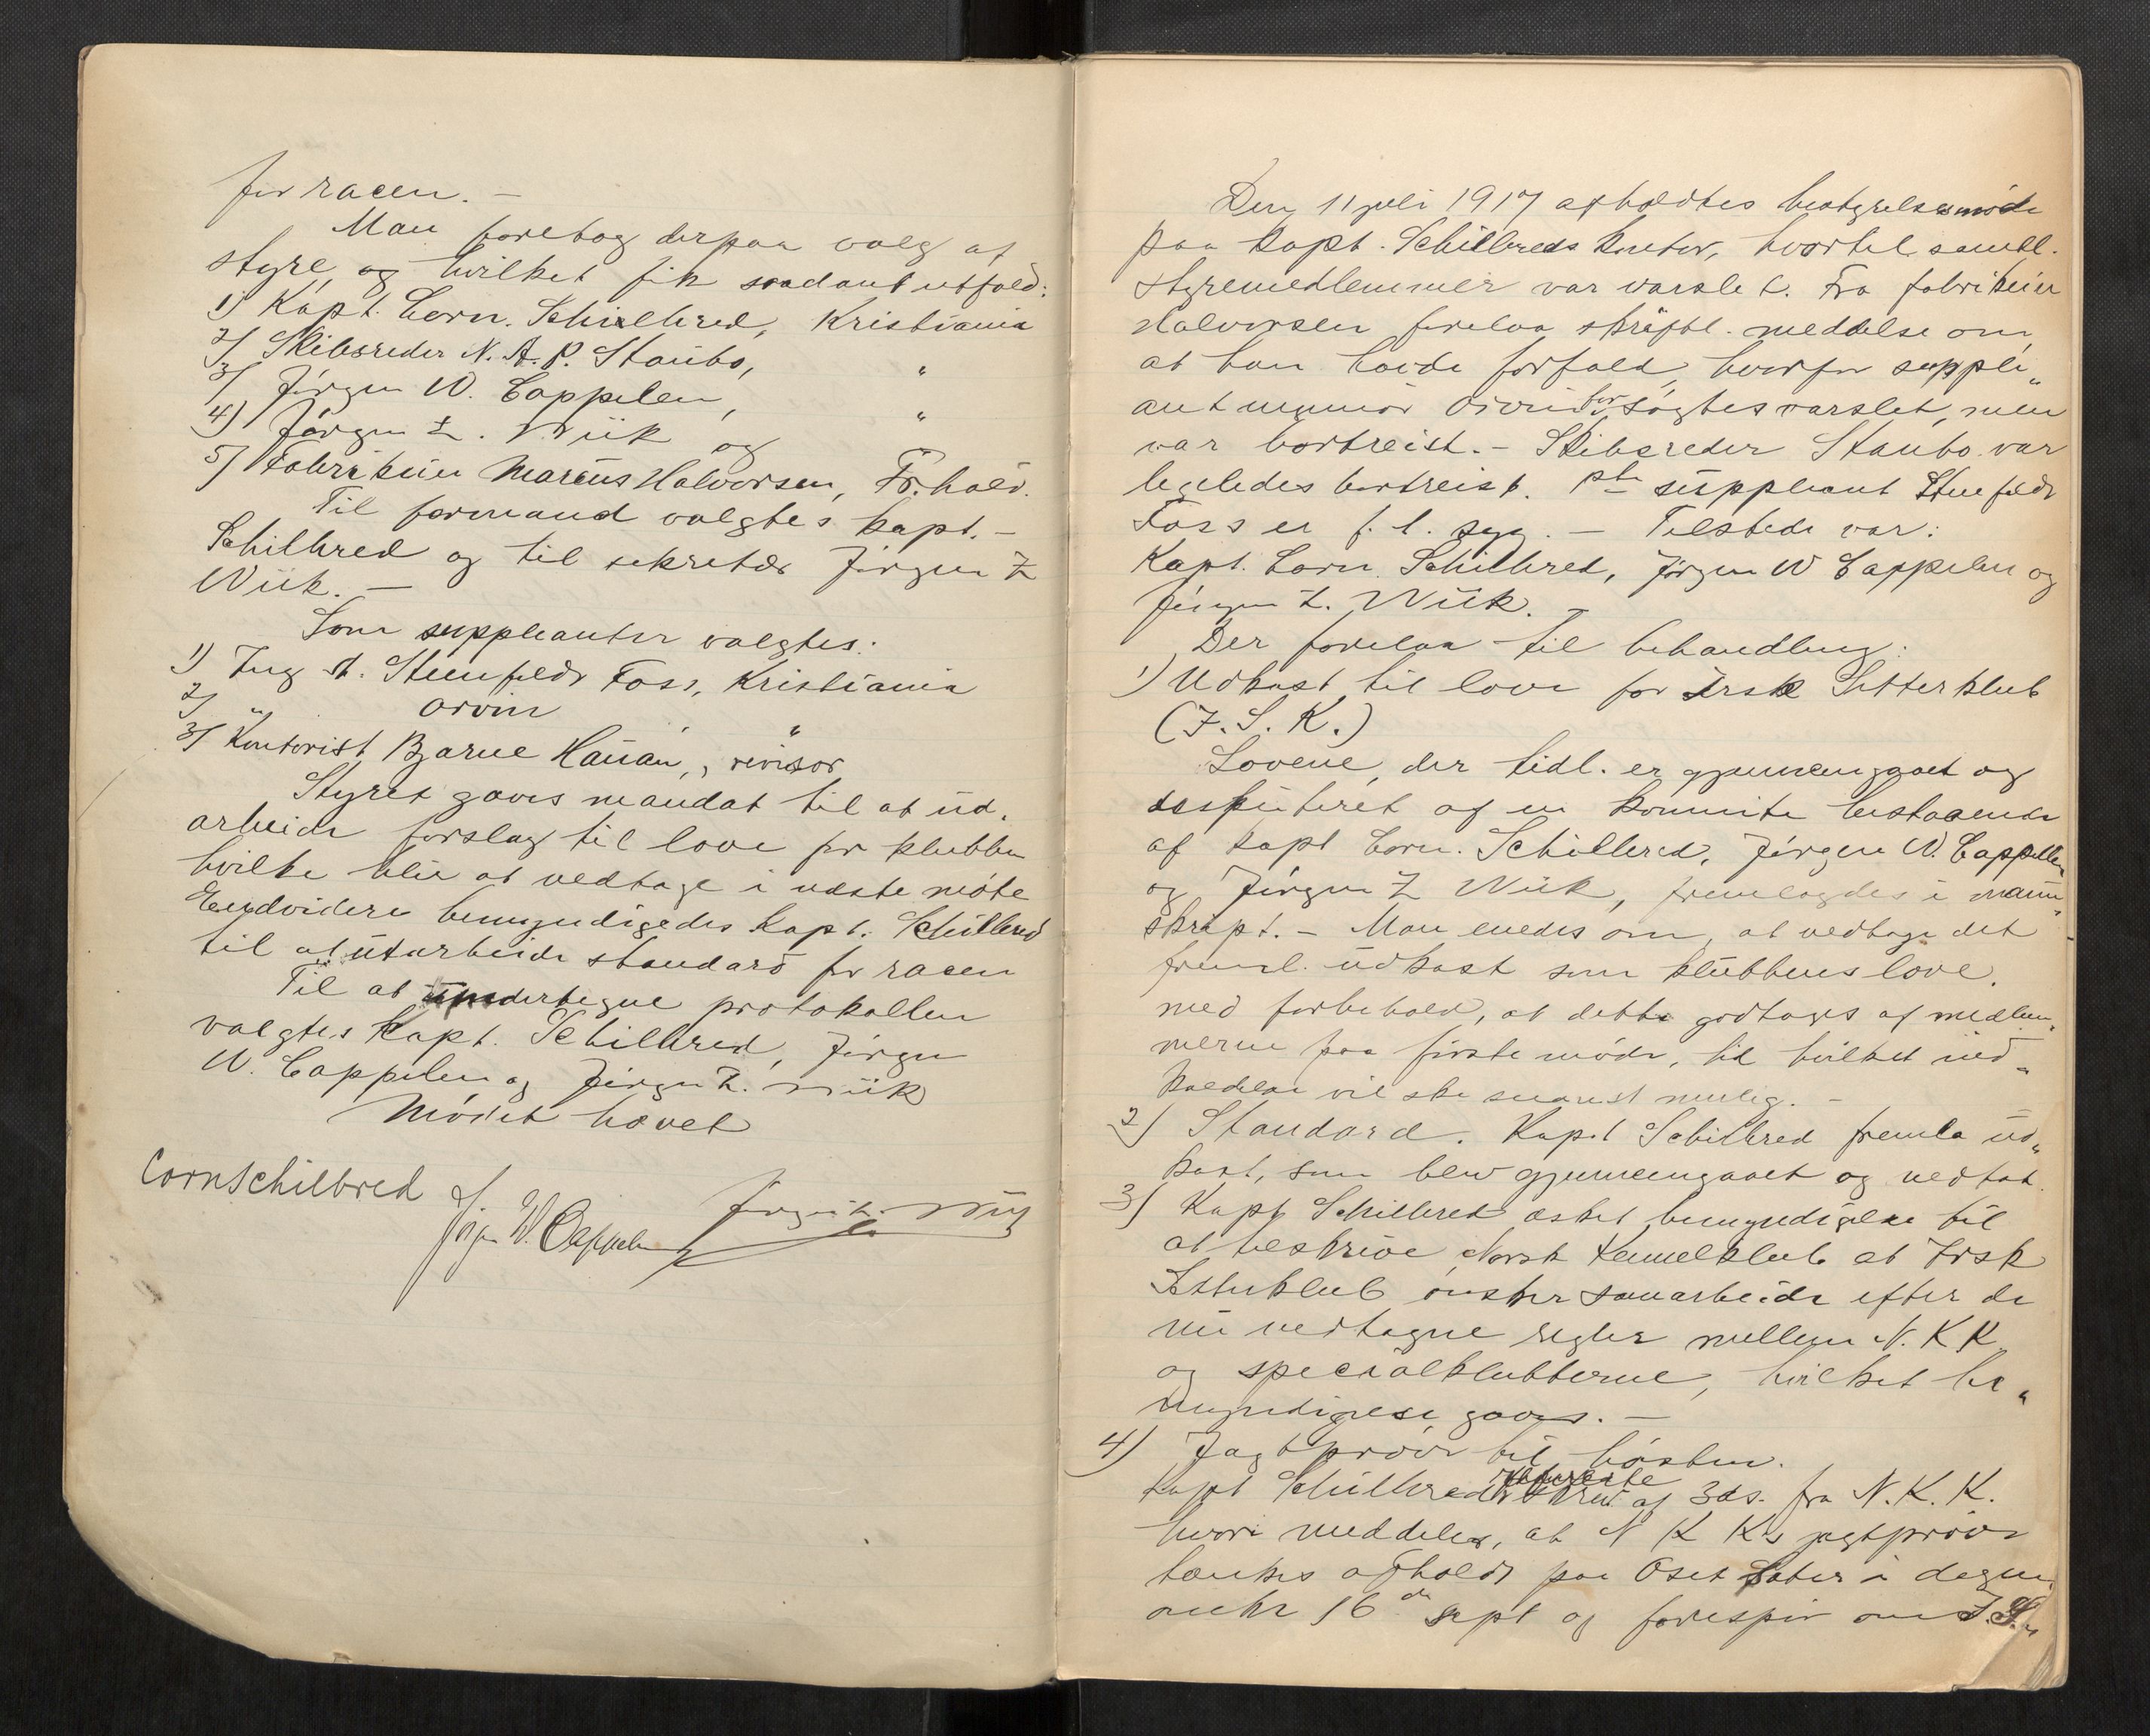 for racen. —
Man foretog derpaa valg af
styre, og hvilket fik saadant utfald:
1) Kapt. Corn. Schilbred, Kristiania
2) Skibsreder N. A. P. Staubo, "
3) Jörgen W. Cappelen, "
4) Jörgen Z. Wiik og "
5) Fabrikeier Marius Halvorsen, Fr.hald.
Til formand valgtes kapt. -
Schilbred og til sekretær Jörgen Z
Wiik. —
Som suppleanter valgtes:
1) Ing. A. Steenfeldt Foss, Kristiania
2) " Orvin "
3) Kontorist Bjarne Hauan, " revisor
Styret gaves mandat til at ud-
arbeide forslag til love for klubben
hvilke blir at vedtage i næste möte
Endvidere bemyndigedes Kapt. Schilbred
til at utarbeide standard for racen
Til at undertegne protokollen
valgtes Kapt. Schilbred, Jörgen
W. Cappelen og Jörgen Z. Wiik
Mödet hævet
Corn Schilbred Jörgen W. Cappelen Jörgen Z. Wiik
Den 11 juli 1917 afholdtes bestyrelsesmöde
paa kapt. Schilbreds kontor, hvortil samtl.
styremedlemmer var varslet. Fra fabrikeier
Halvorsen forelaa skriftl. meddelse om,
at han havde forfald, hvorfor suppli„
ant ingeniör Orvin for sögtes varslet, men
var bortreist. – Skibsreder Staubo var
ligeledes bortreist. 1ste suppleant Steenfeldt
Foss er f. t. syg. — Tilstede var:
Kapt. Corn. Schilbred, Jörgen W Cappelen og
Jörgen Z. Wiik. –
Der forelaa til behandling:
1) Udkast til love for Irsk Setterklub
(I. S. K.)
Lovene, der tidl. er gjennemgaaet og
diskuteret af en komite bestaaende
af kapt Corn. Schilbred, Jörgen W. Cappelen
og Jörgen Z Wiik, fremlagdes i manu„
skript. – Man enedes om, at vedtage det
freml. udkast som klubbens love.
med forbehold, at dette godtages af medlem„
merne paa förste möde, til hvilket ind„
kaldelse vil ske snarest mulig. –
2) Standard. Kapt Schilbred fremla ud„
kast, som blev gjennemgaaet og vedtat.
3) Kapt Schilbred æsket bemyndigelse til
at tilskrive Norsk Kennelklub at Irsk
Setterklub önsker samarbeide efter de
nu vedtagne regler mellem N. K K
og specialklubberne, hvilket be„
myndigelse gaves. —
4) Jagtpröve til hösten.
Kapt Schilbred refererte skriv af 3ds. fra N. K. K.
hvori meddeles, at N K K's jagtpröve
tænkes afholdt paa Oset Sæter i dagene
omkr 16de sept og forespör om I. S.„